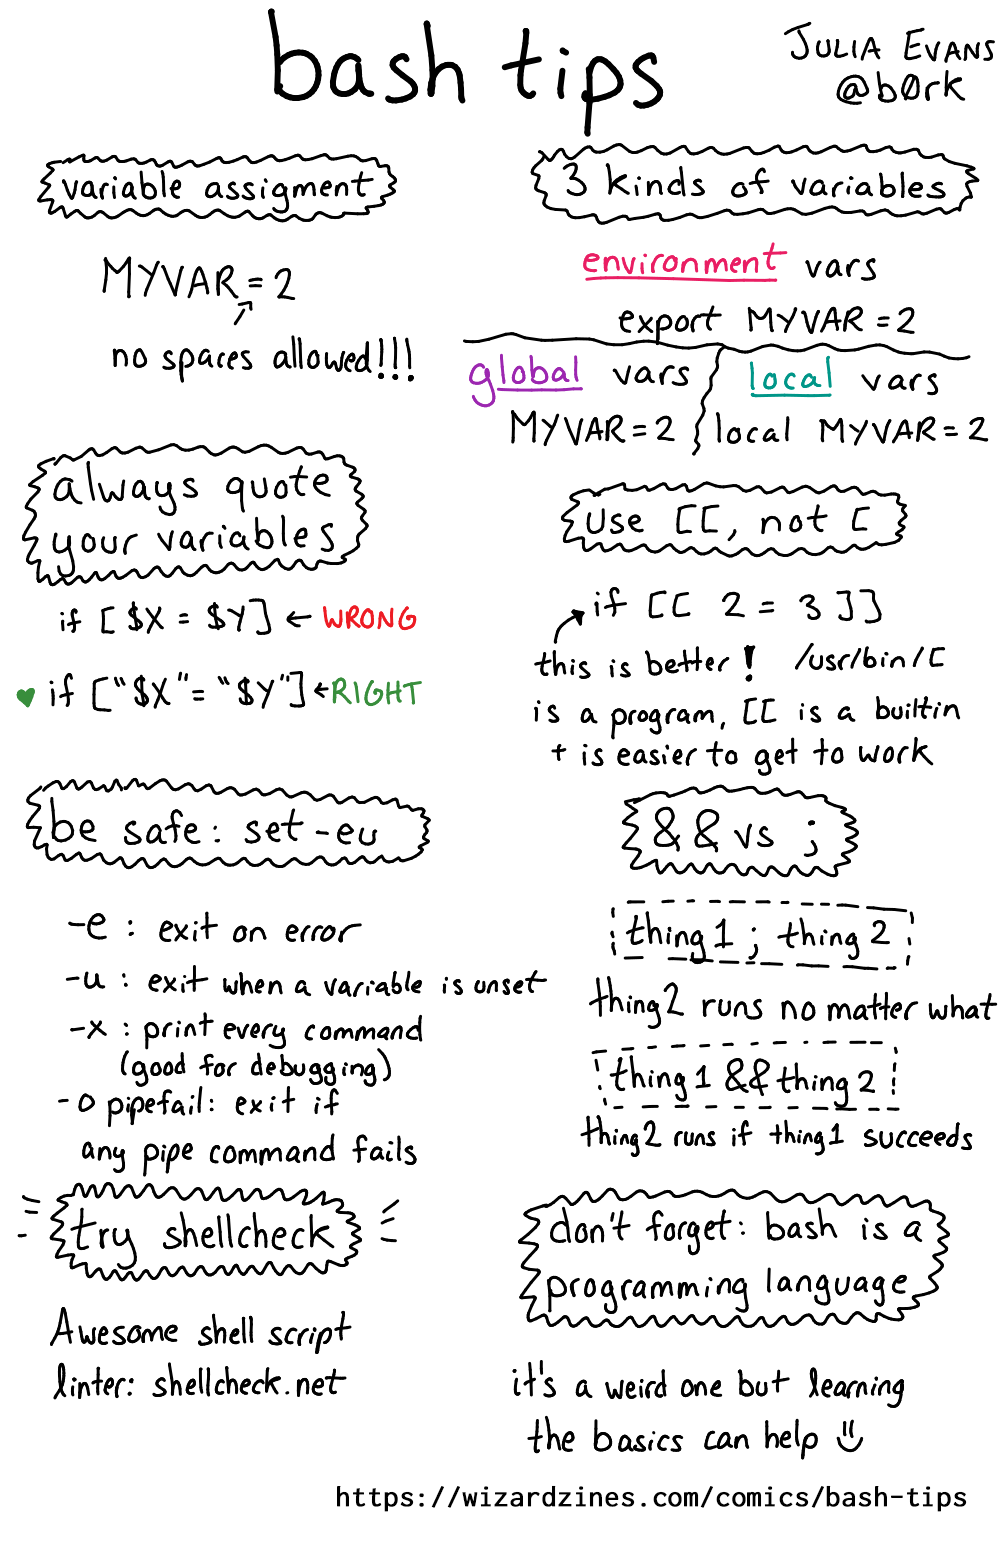 bash tips
JULIA EVANS
@b0rk
variable assigment
MYVAR=2
no spaces allowed!!!
3 kinds of variables
environment vars
export MYVAR=2
global vars
MYVAR=2
local vars
local MYVAR=2
always quote
your variables
if [ $X = $Y] ← WRONG
♥ if ["$X"= "$Y"] ← RIGHT
Use [[, not [
if [[ 2 = 3 ]]
this is better! /usr/bin/[
is a program, [[ is a builtin
+ is easier to get to work
be safe: set -eu
-e : exit on error
-u : exit when a variable is unset
-x : print every command
(good for debugging)
-o pipefail: exit if
any pipe command fails
&& vs ;
thing1 ; thing2
thing2 runs no matter what
thing1 && thing2
thing2 runs if thing1 succeeds
try shellcheck
Awesome shell script
linter: shellcheck.net
don't forget: bash is a
programming language
it's a weird one but learning
the basics can help
https://wizardzines.com/comics/bash-tips